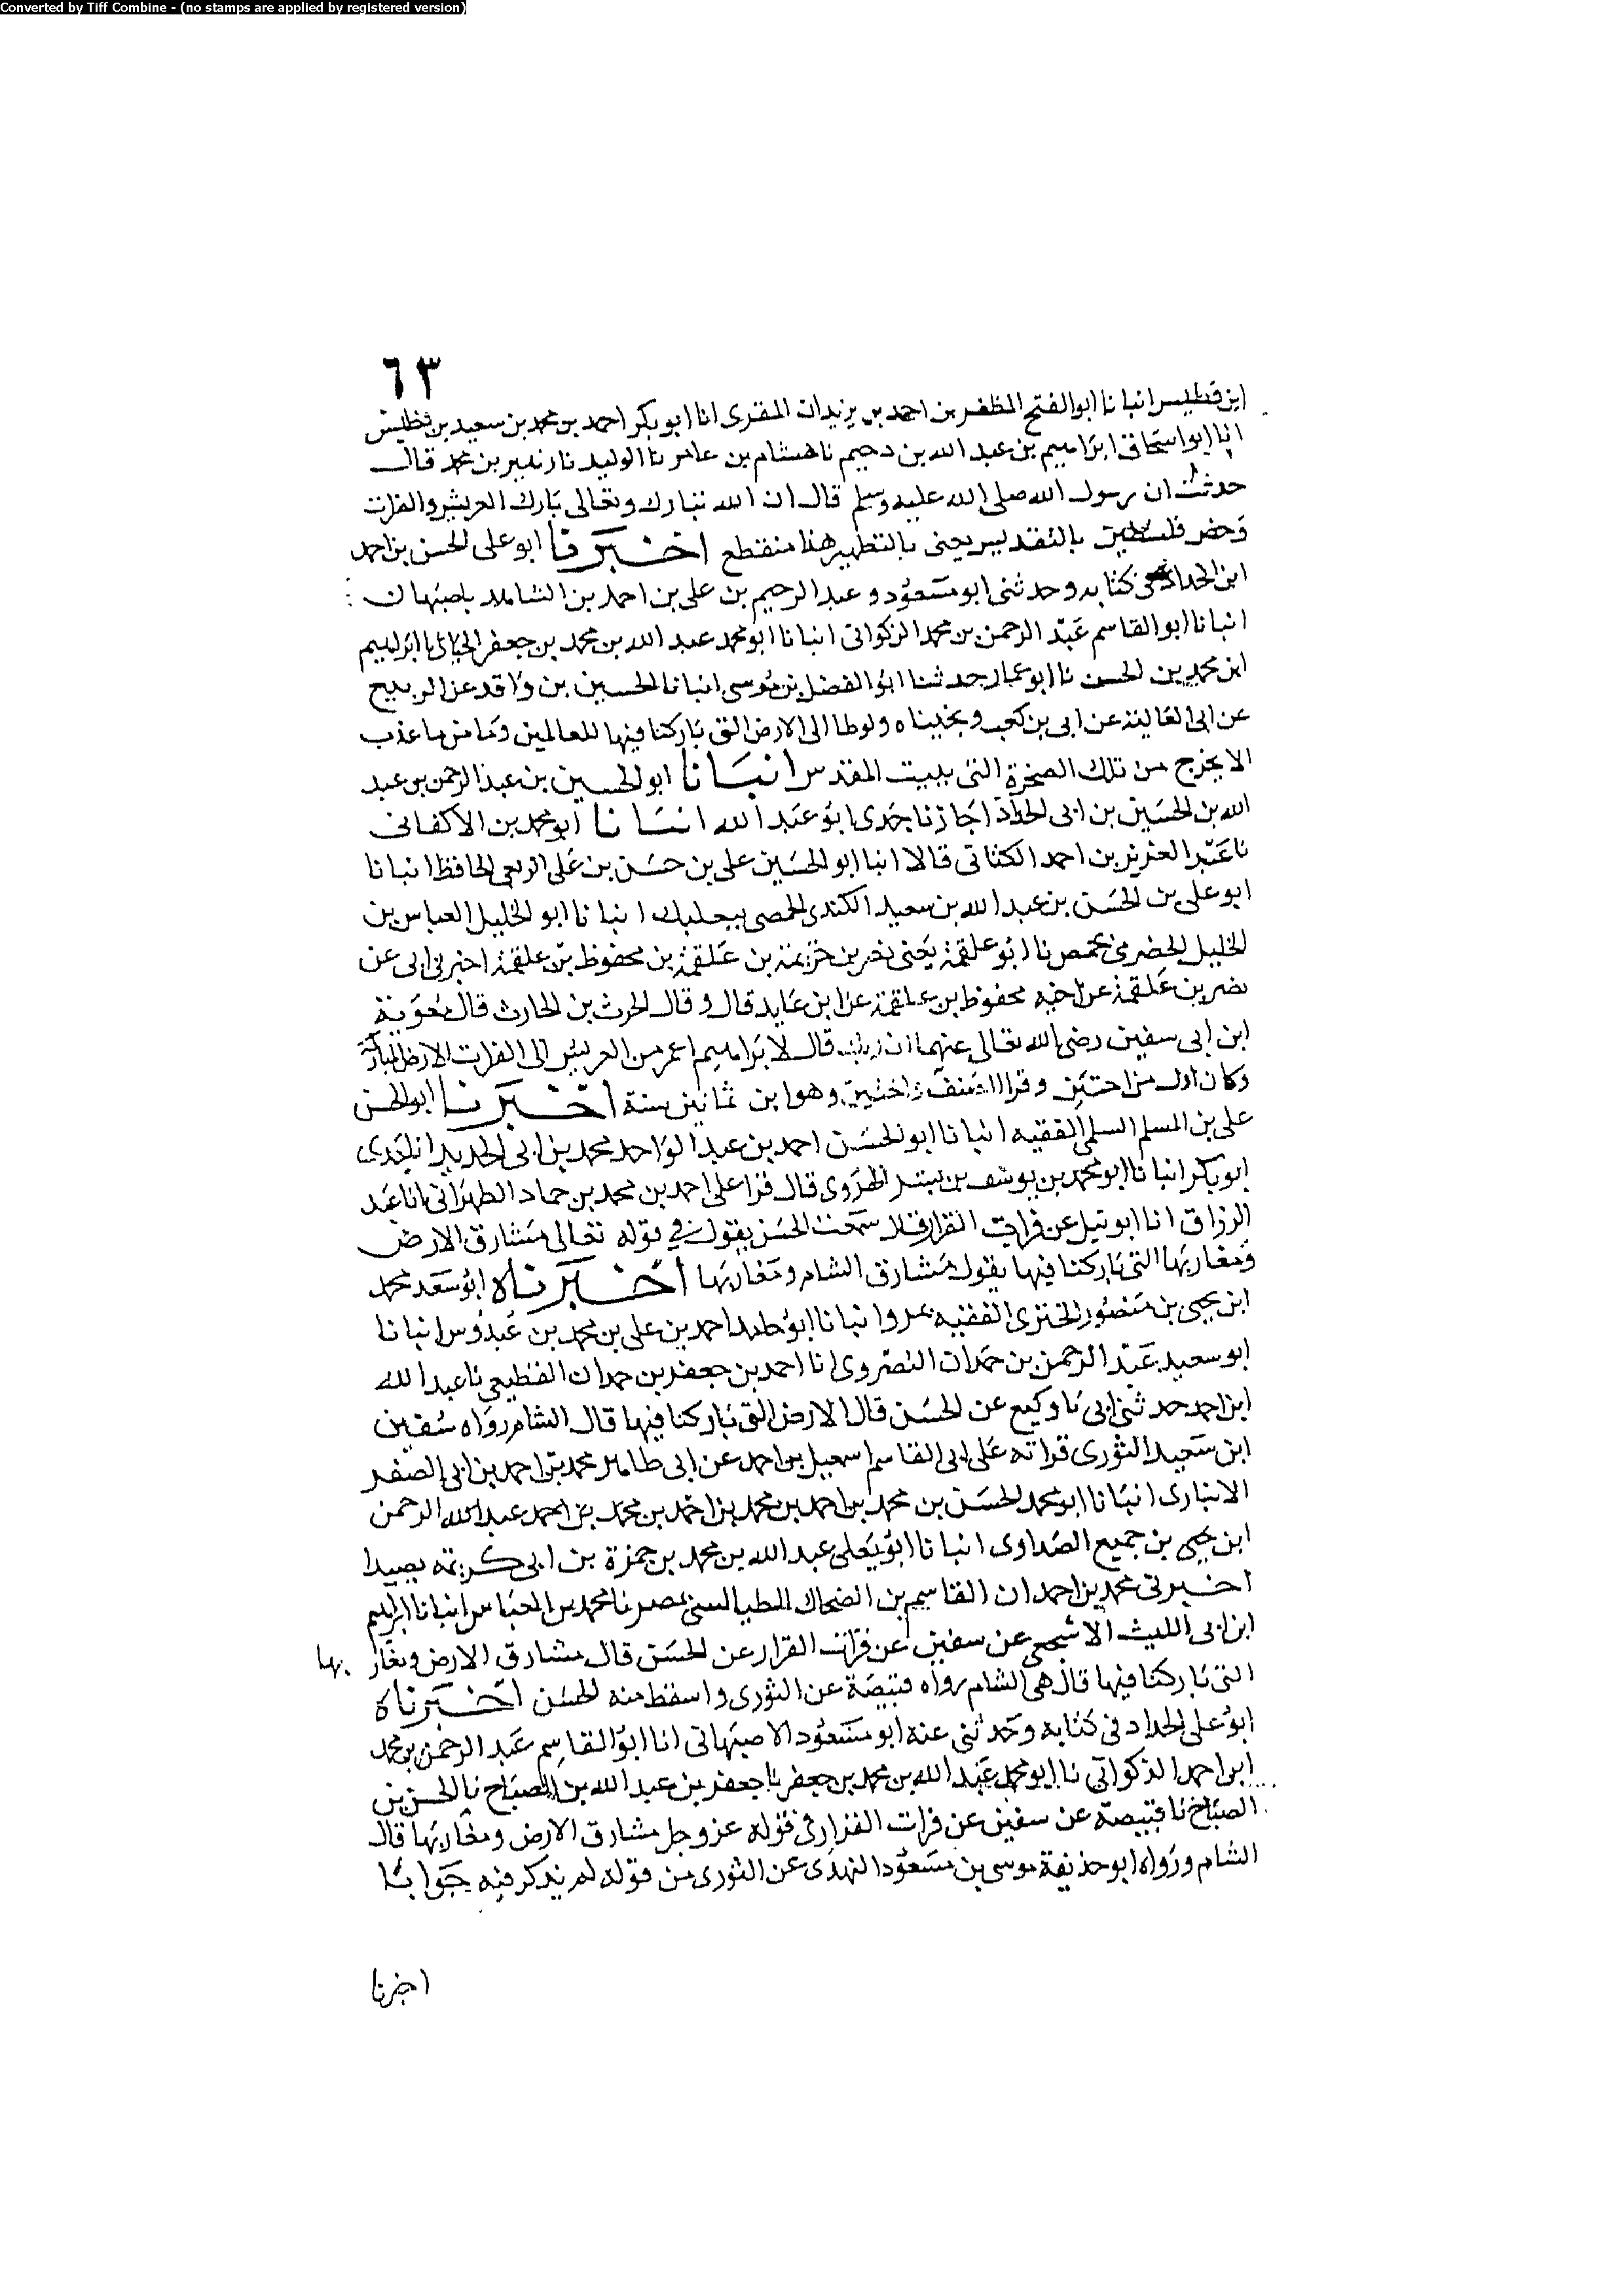 Converted by Tiff Combine - (no stamps are applied by registered version)
٦٣
ابن فطيس انبانا ابو الفتح المظفر بن احمد بن يزيدان المقرى انا ابو بكر احمد بن محمد بن سعيد بن فطيس
انا ابو اسحاق ابراهيم بن عبد الله بن دحيم نا هشام بن عامر نا الوليد نا زهير بن محمد قال
حدثت ان رسول الله صلى الله عليه وسلم قال ان الله تبارك وتعالى بارك العريش والفرات
وخص فلسطين بالتقديس يعنى بالتطهير هذا منقطع اخبرنا ابو على الحسن بن احمد
ابن الحداد فى كتابه وحدثنى ابو مسعود وعبد الرحيم بن على بن احمد بن باصبهان
انبانا ابو القاسم عبد الرحمن بن محمد الزكوانى انبانا ابو محمد عبد الله بن محمد بن جعفر نا ابراهيم
ابن محمد بن الحسن نا ابو عمار حدثنا ابو الفضل بن موسى انبانا الحسين بن واقد عن الربيع
عن ابى العالية عن ابى بن كعب ونجيناه ولوطا الى الارض التى باركنا فيها للعالمين وما من ما عذب
الا يخرج من تلك الصخرة التى ببيت المقدس انبانا ابو الحسين بن عبد الرحمن بن عبد
الله بن الحسين بن ابى الحداد اجازنا جدى ابو عبد الله انبانا ابو محمد بن الاكفانى
نا عبد العزيز بن احمد الكتانى قالا انبا ابو الحسين على بن حسن بن على الربعى الحافظ انبانا
ابو على بن الحسن بن عبد الله بن سعيد الكندى الحمصى ببعلبك انبانا ابو الخليل العباس بن
الخليل الحضرمى بحمص نا ابو علقمة يعنى نصر بن خزيمة بن علقمة بن محفوظ بن علقمة اخبرنى ابى عن
نصر بن علقمة عن اخيه محفوظ بن علقمة عن ابن عايد قال وقال الحرث بن الحارث قال معوية
ابن ابى سفين رضى الله تعالى عنهما ان ربك قال لابراهيم اعمر من العريش الى الفرات الارض المباركة
وكان اول من اختتن وقرا الضيف واختتن وهو ابن ثمانين سنة اخبرنا ابو الحسن
على بن المسلم السلمى الفقيه انبانا ابو الحسن احمد بن عبد الواحد محمد بن ابى الحديد انا جدى
ابو بكر انبانا ابو محمد بن يوسف بن بشر الهروى قال قرا على احمد بن محمد بن حماد الطهرانى انا عبد
الرزاق انا عن فرات القزاز قال سمعت الحسن يقول فى قوله تعالى مشارق الارض
ومغاربها التى باركنا فيها يقول مشارق الشام ومغاربها اخبرناه ابو سعد محمد
ابن يحيى بن منصور الفقيه بمرو انبانا ابو حامد احمد بن على بن محمد بن عبدوس انبانا
ابو سعيد عبد الرحمن بن حمدان النصروى انا احمد بن جعفر بن حمدان القطيعى نا عبد الله
ابن احمد حدثنى ابى نا وكيع عن الحسن قال الارض التى باركنا فيها قال الشام رواه سفين
ابن سعيد الثورى قراته على ابى القاسم اسمعيل بن احمد عن ابى طاهر محمد بن احمد بن ابى الصقر
الانبارى انبانا ابو محمد الحسن بن محمد بن احمد بن محمد بن احمد بن محمد بن احمد عبد الله الرحمن
ابن يحيى بن جميع الصداوى انبانا ابو يعلى عبد الله بن محمد بن حمزة بن ابى كريمة بصيدا
اخبرنى محمد بن احمد ان القاسم بن الضحاك بمصر نا محمد بن العباس انبانا ابراهيم
ابن ابى الليث الاشجعى عن سفين عن فرات القزاز عن الحسن قال مشارق الارض ومغاربها
التى باركنا فيها قال هى الشام رواه قبيصة عن الثورى واسقط منه الحسن اخبرناه
ابو على الحداد فى كتابه وحدثنى عنه ابو مسعود الاصبهانى انا ابو القاسم عبد الرحمن بن محمد
ابن احمد الذكوانى نا ابو محمد عبد الله بن محمد بن جعفر نا جعفر بن عبد الله بن الصباح نا الحسن بن
الصباح نا قبيصة عن سفين عن فرات القزاز فى قوله عز وجل مشارق الارض ومغاربها قال
الشام ورواه ابو حذيفة موسى بن مسعود النهدى عن الثورى من قوله لم يذكر فيه جوابا
اخبرنا